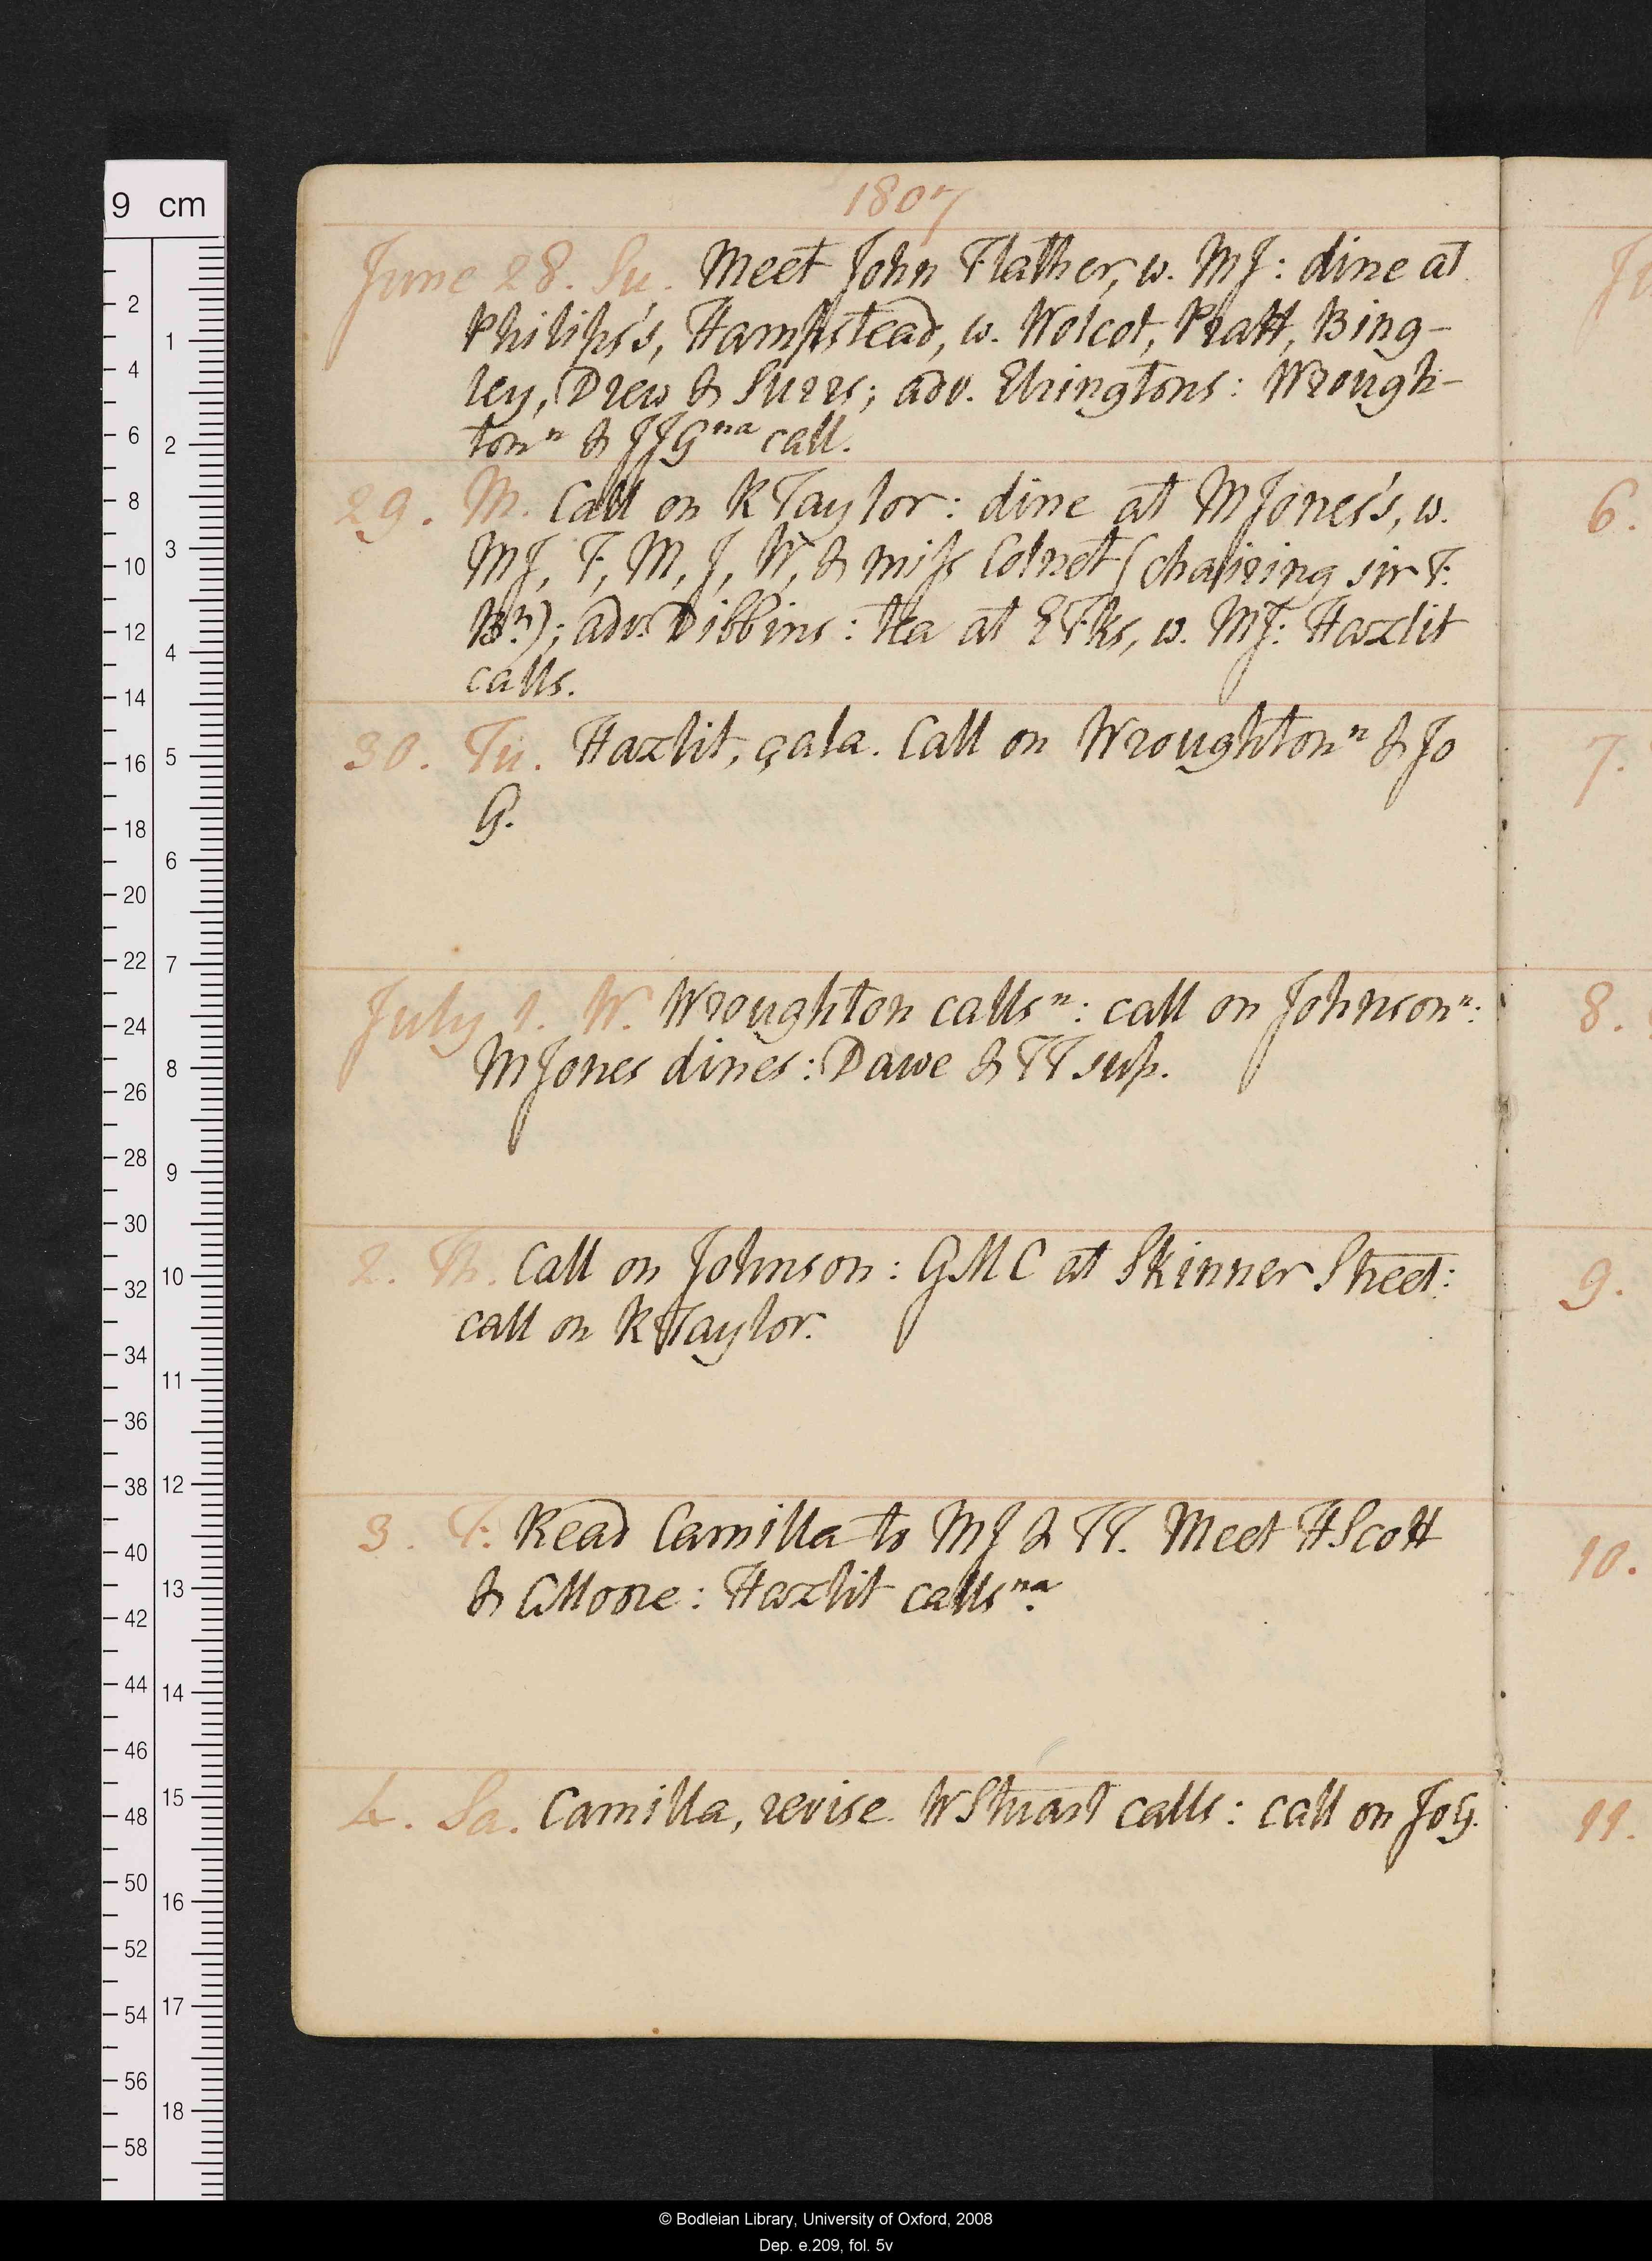 1807
June 28. Su. Meet John Flather, w. MJ: dine at
Philips's, Hampstead, w. Wolcot, Pratt, Bing-
ley, Drew & Surrs; adv. Elringtons: Wrough-
tonⁿ & JJGⁿᵃ call.
29. M. Call on RTaylor: dine at MJones's, w.
MJ, F, M, J, W, & miss Colnet (chairing sir F.
Bt.); adv. Dibbins: tea at EFks, w. MJ: Hazlit
calls.
30. Tu. Hazlit, çala. Call on Wroughtonⁿ & Jo
G.
July 1. W. Wroughton callsⁿ: call on Johnsonⁿ:
MJones dines: Dawe & TT sup.
2. Th. Call on Johnson: GMC at Skinner Street:
call on RTaylor.
3. F. Read Camilla to MJ & TT. Meet HScott
& CMoore: Hazlit callsⁿᵃ.
4. Sa. Camilla, revise. WStuart calls: call on JoG.
6.
7.
8.
9.
10.
11.
9 cm
2
4
6
8
10
12
14
16
18
20
22
24
26
28
30
32
34
36
38
40
42
44
46
48
50
52
54
56
58
1
2
3
4
5
6
7
8
9
10
11
12
13
14
15
16
17
18
© Bodleian Library, University of Oxford, 2008
Dep. e.209, fol. 5v